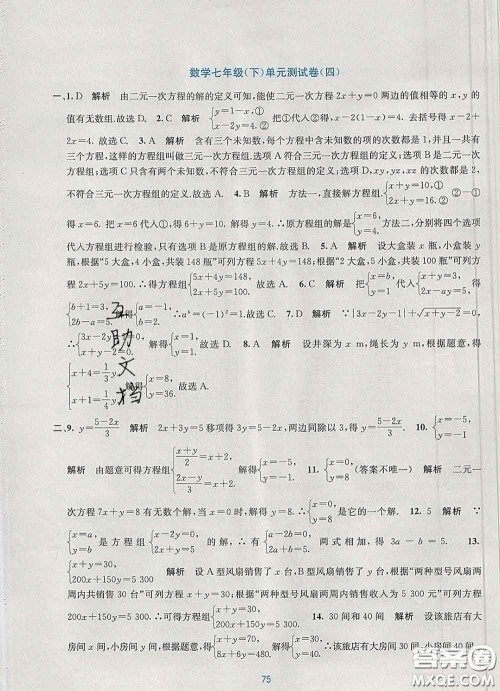 数学七年级(下)单元测试卷(四)
一、1. D 解析 由二元一次方程的解的定义可知,能使二元一次方程 2x+y=0 两边的值相等的 x,y 的
值有无数组.故选 D. 2. C 解析 {y=1-x,① x-2y=4.② 把①代入②得 x-2(1-x)=4.去括号得 x-2+
2x=4.故选 C. 3. A 解析 含有三个未知数,每个方程中含未知数的项的次数都是 1,并且一共有
三个方程,这样的方程组叫做三元一次方程组.选项 A 符合三元一次方程组的定义,故本选项正确;
选项 C 只含有两个未知数,不符合三元一次方程组的定义;选项 D,xy,yz,xz 的次数都是 2,
不符合三元一次方程组的定义.故选 A. 4. B 解析 方法一,直接解方程组,{x+y=10,① 2x+y=16.② ②-①
得 x=6.把 x=6 代入①,得 y=4.∴原方程组的解为 {x=6, y=4. 方法二,分别将四个选项
代入方程组进行检验,只有选项 B 是原方程组的解.故选 B. 5. A 解析 设大盒装 x 瓶,小盒装 y
瓶,根据“5 大盒,4 小盒,共装 148 瓶”可列方程 5x+4y=148,根据“2 大盒,5 小盒,共装 100 瓶”可列
方程 2x+5y=100.∴得方程组 {5x+4y=148, 2x+5y=100. 故选 A. 6. C 解析 把 {x=1, y=2. 代入
{b+1=3, 2b-a=5. 解得 {a=-1, b=2. ∴a^b=(-1)^2=1.故选 C. 7. D 解析 ∵|3x-2y-1|+√(x+y-2)=0,
∴{3x-2y-1=0, x+y-2=0. 解得 {x=1, y=1. 故选 D. 8. A 解析 设井深为 x m,绳长为 y m,根据题意,得
{x+4=1/3 y, x+1=1/4 y. 解得 {x=8, y=36. 故选 A.
互助文档
二、9. y=(5-2x)/3 解析 2x+3y=5 移项得 3y=5-2x,两边同除以 3,得 y=(5-2x)/3. 10. {x=-5, y=-1
解析 由题意可得方程组 解得 {x=-5, y=-1. 11. {x=0, y=8 (答案不唯一) 解析 二元一
次方程 7x+y=8 有无数个解,当 x=0 时,解得 y=8.∴{x=0, y=8. 是它的一个解. 12. 5 解析 ∵
{x=a, y=b. 是方程组 ∴ 两式相加,得 3a-b=5. 13.
{x+y=30, 200x+150y=5 300 解析 设 A 型风扇销售了 x 台,B型风扇销售了 y 台,根据“两种型号风扇两
周内共销售 30 台”可列方程 x+y=30;根据“两种型号风扇两周的销售收入为 5 300 元”可列方程
200x+150y=5 300.∴可得方程组 {x+y=30, 200x+150y=5 300. 14. 30间和 40 间 解析 设该旅店有大
房间 x 间,小房间 y 间,根据题意,得 解得 ∴该旅店有大房间 30 间,小房间 40 间.
75
答案圈
MXQE.COM